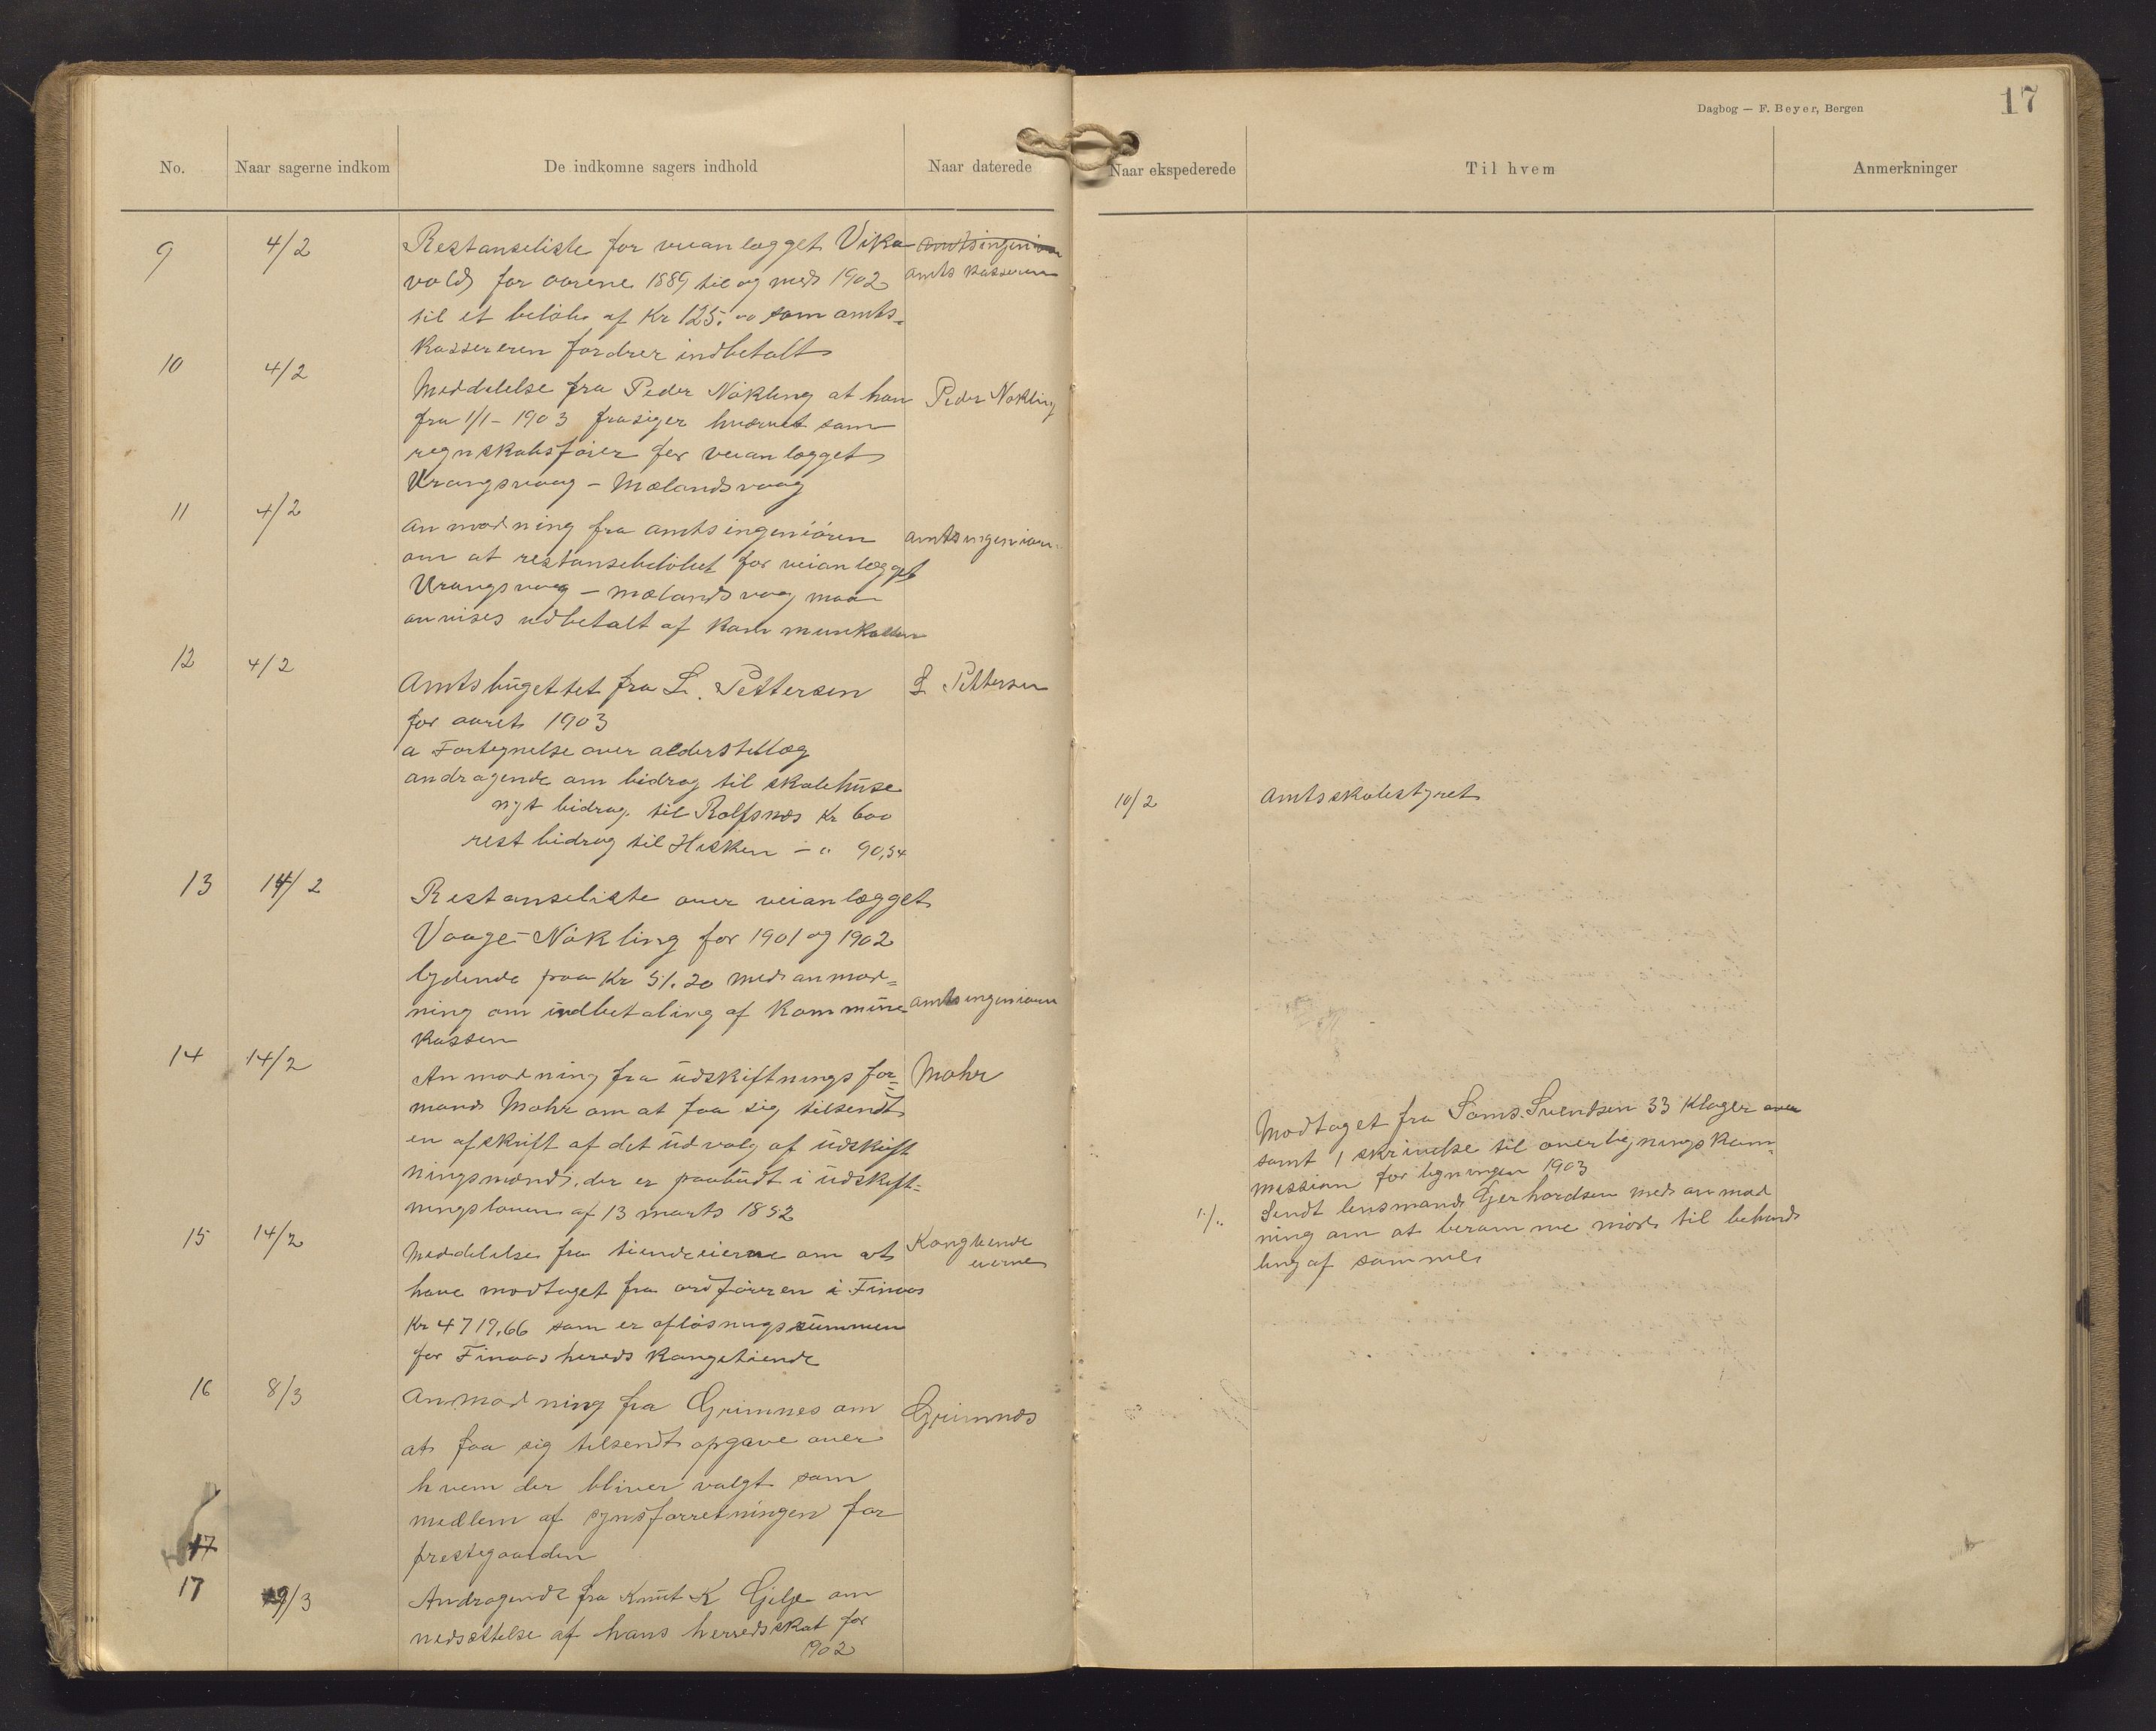 Dagbog — F. Beyer, Bergen
17
No.
Naar sagerne indkom
De indkomne sagers indhold
Naar daterede
Naar ekspederede
Til hvem
Anmerkninger
9 4/2 Restanseliste for veianlægget Vika- amtsingeniør
vold for aarene 1889 til og med 1902 amts kasserer
til et beløb af Kr 125.00 som amts-
kassereren fordrer indbetalt
10 4/2
Meddelelse fra Peder Nökling at han Peder Nökling
fra 1/1 - 1903 frasiger hvervet som
regnskabsfører for veianlægget
Vrangsvaag - Mælandsvaag
11 4/2
Anmodning fra amtsingeniören amtsingeniøren
om at restansebeløbet for veianlægget
Vrangsvaag - mælandsvaag maa
anvises udbetalt af kommunekassen
12 4/2
Amtsbügettet fra L. Pettersen L Pettersen
for aaret 1903
a Fortegnelse over alderstillæg
andragende om bidrag til skolehüse
nyt bidrag til Rolfsnæs Kr 600
rest bidrag til Hisken - " 90,54
10/2 Amtsskolestyret
13 14/2
Restanseliste over veianlægget
Vaage - Nökling for 1901 og 1902
lydende paa Kr 51.20 med anmod-
ning om indbetaling af kommüne- amtsingeniøren
kassen
14 14/2
Anmodning fra üdskiftningsfor- Mohr
mand Mohr om at faa sig tilsendt
en afskrift af det üdvalg af üdskift
ningsmænd, der er paabüdt i üdskift-
ningsloven af 13 marts 1882
15 14/2
Meddelelse fra tiendeeierne om at Kongtiende
eierne
have modtaget fra ordføreren i Finaas
Kr 4719,66 som er afløsningssümmen
for Finaas hereds Kongetiende
Modtaget fra Søms. Svendsen 33 klager over
samt 1 skrivelse til overligningskom-
mission for ligningen 1903
Sendt lensmand Gerhardsen med anmod
ning om at beramme möde til behand
ling af samme
16 8/3
Anmodning fra Grimnes om Grimnæs
at faa sig tilsendt opgave over
hvem der bliver valgt som
medlem af synsforretningen for
prestegaarden
17
17 9/3
Andragende fra Knüt K Gilje om
nedsættelse af hans herredsskat for
1902